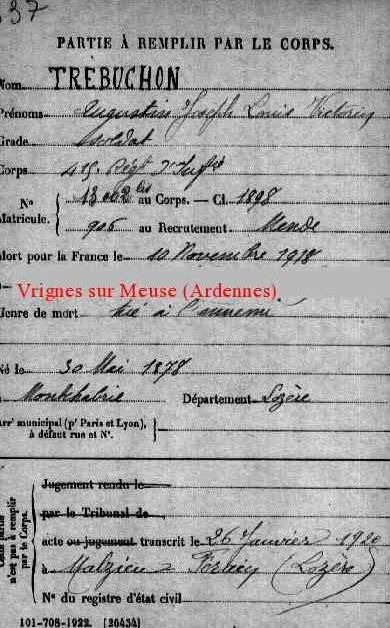 37
PARTIE À REMPLIR PAR LE CORPS.
Nom. TRÉBUCHON
Prénoms Augustin Joseph Louis Victorin
Grade Soldat
Corps 415 Régt d'Inftie
N° Matricule. { 13.002 bis au Corps. — Cl. 1898
906 au Recrutement Mende
Mort pour la France le 10 Novembre 1918
Vrignes sur Meuse (Ardennes)
Genre de mort tué à l'ennemi
Né le 30 Mai 1878
Département Lozère
Arrt municipal (pr Paris et Lyon), à défaut rue et N°. }
Cette partie n'est pas à remplir par le Corps.
Jugement rendu le
par le Tribunal de
acte ou jugement transcrit le 26 Janvier 1920
à Malzieu - Forain (Lozère)
N° du registre d'état civil
101-708-1922. [26434]